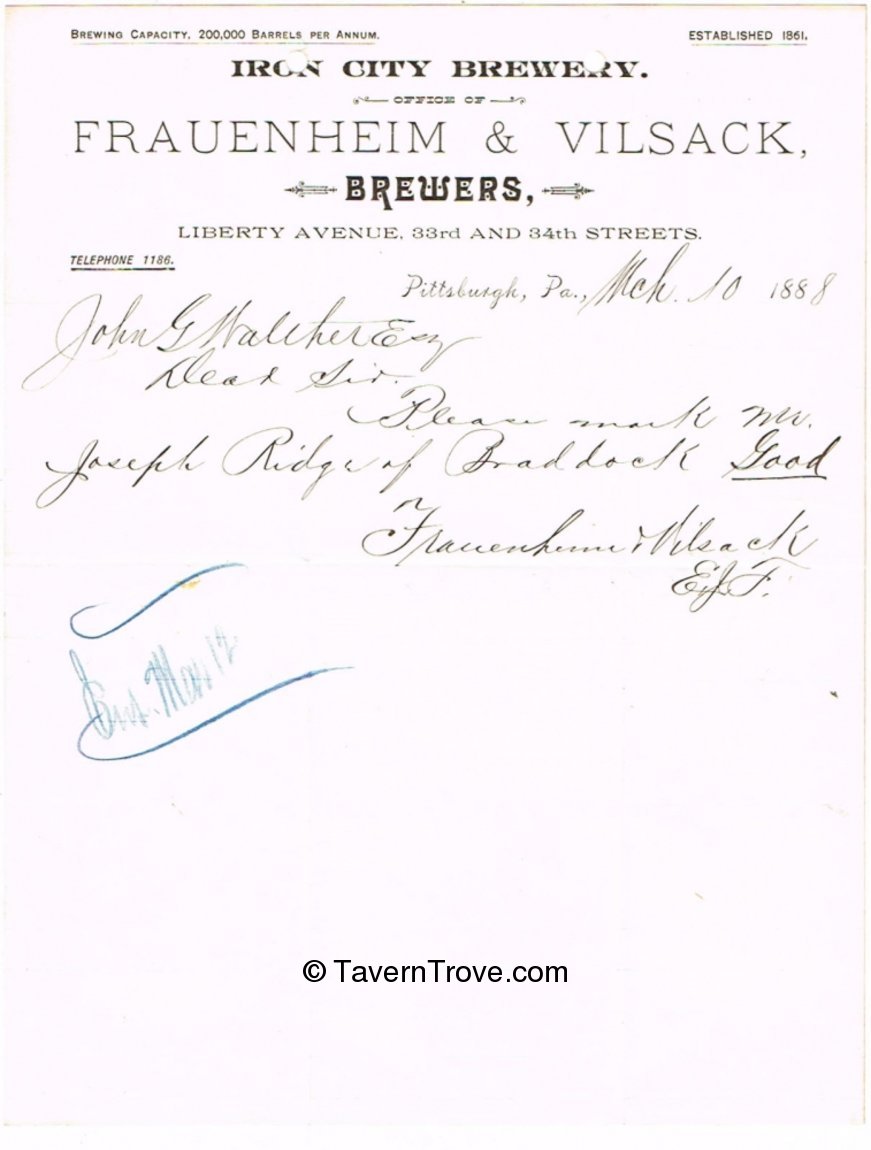 BREWING CAPACITY, 200,000 BARRELS PER ANNUM.
ESTABLISHED 1861.
IRON CITY BREWERY.
OFFICE OF
FRAUENHEIM & VILSACK,
BREWERS,
LIBERTY AVENUE, 33rd AND 34th STREETS.
TELEPHONE 1186.
Pittsburgh, Pa., Mch. 10 1888
John G Walther Esq
Dear Sir.
Please mark Mr.
Joseph Ridge of Braddock Good
Frauenheim & Vilsack
E.J.F.
Mar 12
© TavernTrove.com